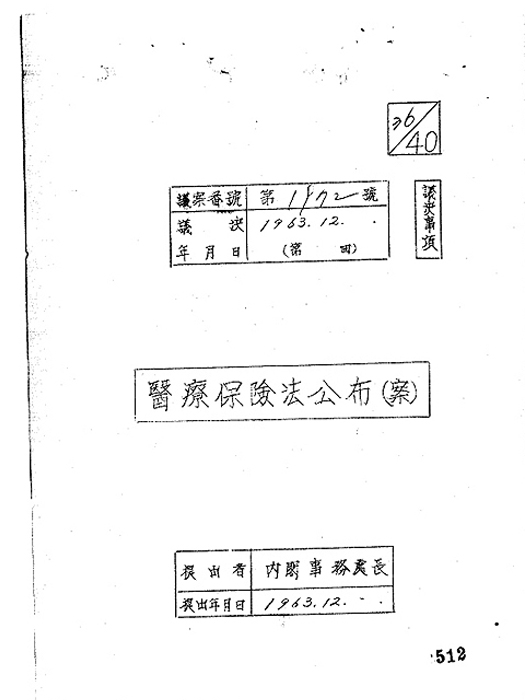 36/40
議案番號 第1172號
議決 1963.12. .
年月日 (第 回)
議決事項
醫療保險法公布(案)
提出者 內閣事務處長
提出年月日 1963.12. .
512